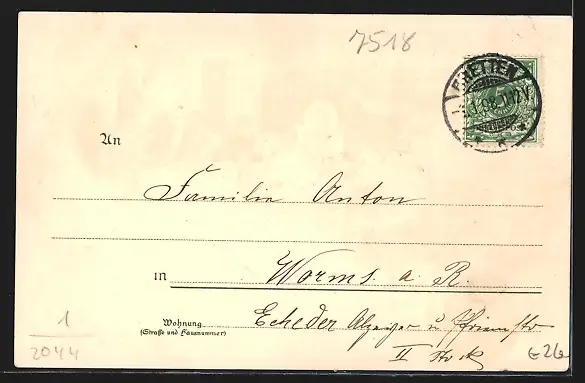 7518
BRETTEN
98
An
Familie Anton
in Worms a. R.
Wohnung
(Straße und Hausnummer)
Ecke der Alzeyer u Pfriemstr
II Stock
1
2044